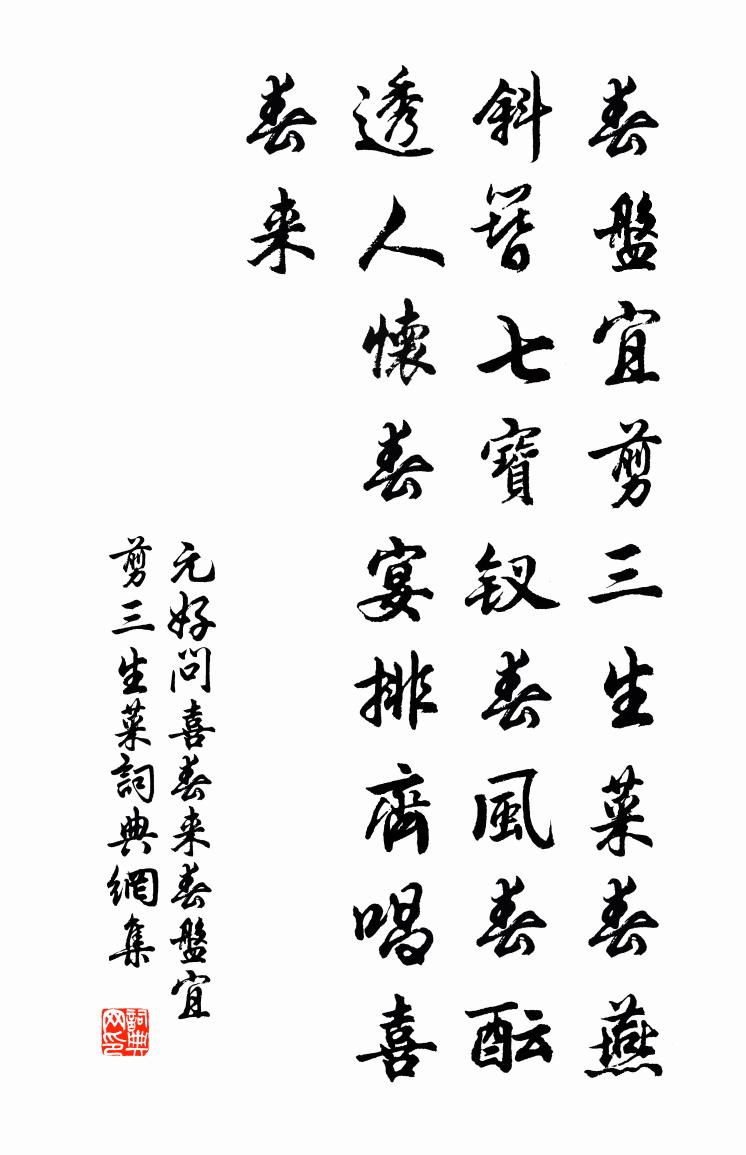 春盤宜剪三生菜春燕
斜簪七寶釵春風春酝
透人懷春宴排齊唱喜
春来
元好問喜春来春盤宜
剪三生菜詞典網集
詞典网印